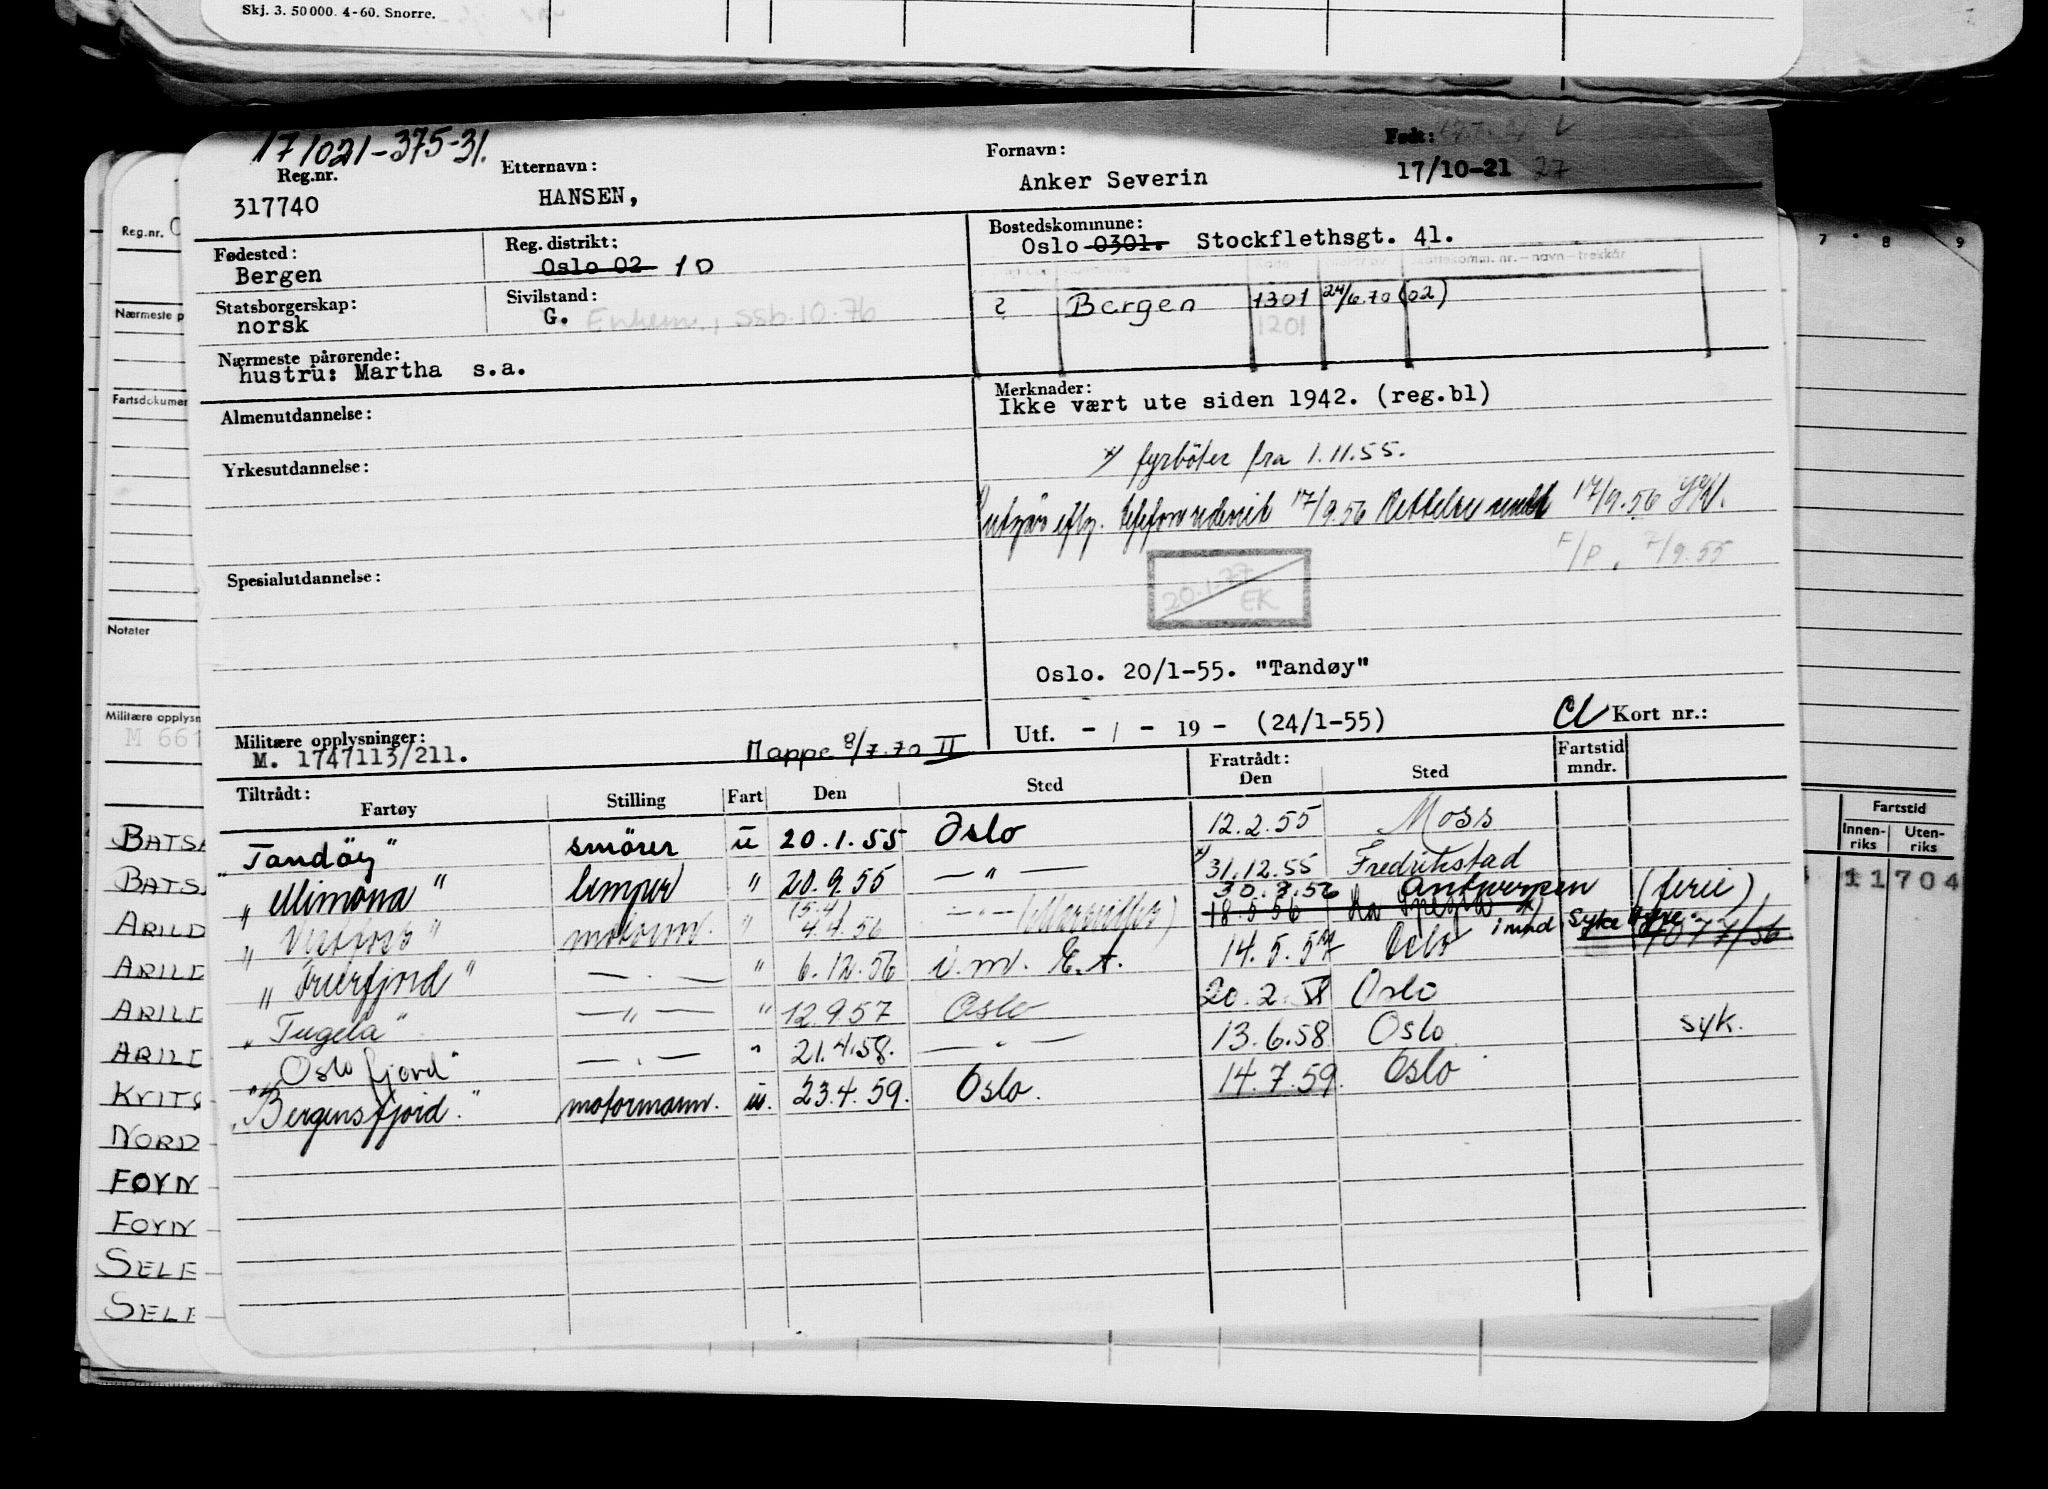 Skj. 3. 50000. 4-60. Snorre.
171021-375-31.
Reg.nr.
317740
Etternavn:
HANSEN,
Fornavn:
Anker Severin
Født:
17/10-21 27
Fødested:
Bergen
Reg. distrikt:
Oslo 02 10
Bostedskommune:
Oslo 0301. Stockflethsgt. 41.
Statsborgerskap:
norsk
Sivilstand:
G. Enkem., ssb.10.76
? Bergen 1301 24/6.70 (02)
1201
Nærmeste pårørende:
hustru: Martha s.a.
Almenutdannelse:
Yrkesutdannelse:
Spesialutdannelse:
Merknader:
Ikke vært ute siden 1942. (reg.bl)
*) fyrböter fra 1.11.55.
17/9.56 Rettelse 17/9.56
F/P. 7/9.55
20.1.77
EK
Oslo. 20/1-55. "Tandøy"
Utf. - / - 19 - (24/1-55) Kort nr.:
Militære opplysninger:
M. 1747113/211.
Mappe 8/7.70 II
Tiltrådt:
Fartøy Stilling Fart Den Sted
Fratrådt:
Den Sted
Fartstid
mndr.
"Tandöy" smörer u 20.1.55 Oslo 12.2.55 Moss
"Mimona" lemper " 20.9.55 — " — *) 31.12.55 Fredrikstad
30.7.56 Antwerpen (ferie)
"Vestfoss" motorm. " (5.4) 4.4.56 — " — 18.5.56 La Spezia *) 1 mnd. syke hyre.
"Frierfjord" — . — " 6.12.56 14.5.57 Oslo
"Tugela" — " — " 12.9.57 Oslo 20.2.58 Oslo
"Oslofjord" — . — " 21.4.58. — " — 13.6.58 Oslo syk.
"Bergensfjord." motormann. u. 23.4.59. Oslo. 14.7.59. Oslo
Reg.nr.
Nærmeste p
Fartsdokumen
Notater
Militære opplysn
M 661
BATS
BATS
ARILD
ARILD
ARILD
ARILD
KVITS
NORD
FOYN
FOYN
SELF
SELF
7 8 9
Fartstid
Innen-
riks
Uten-
riks
11 704